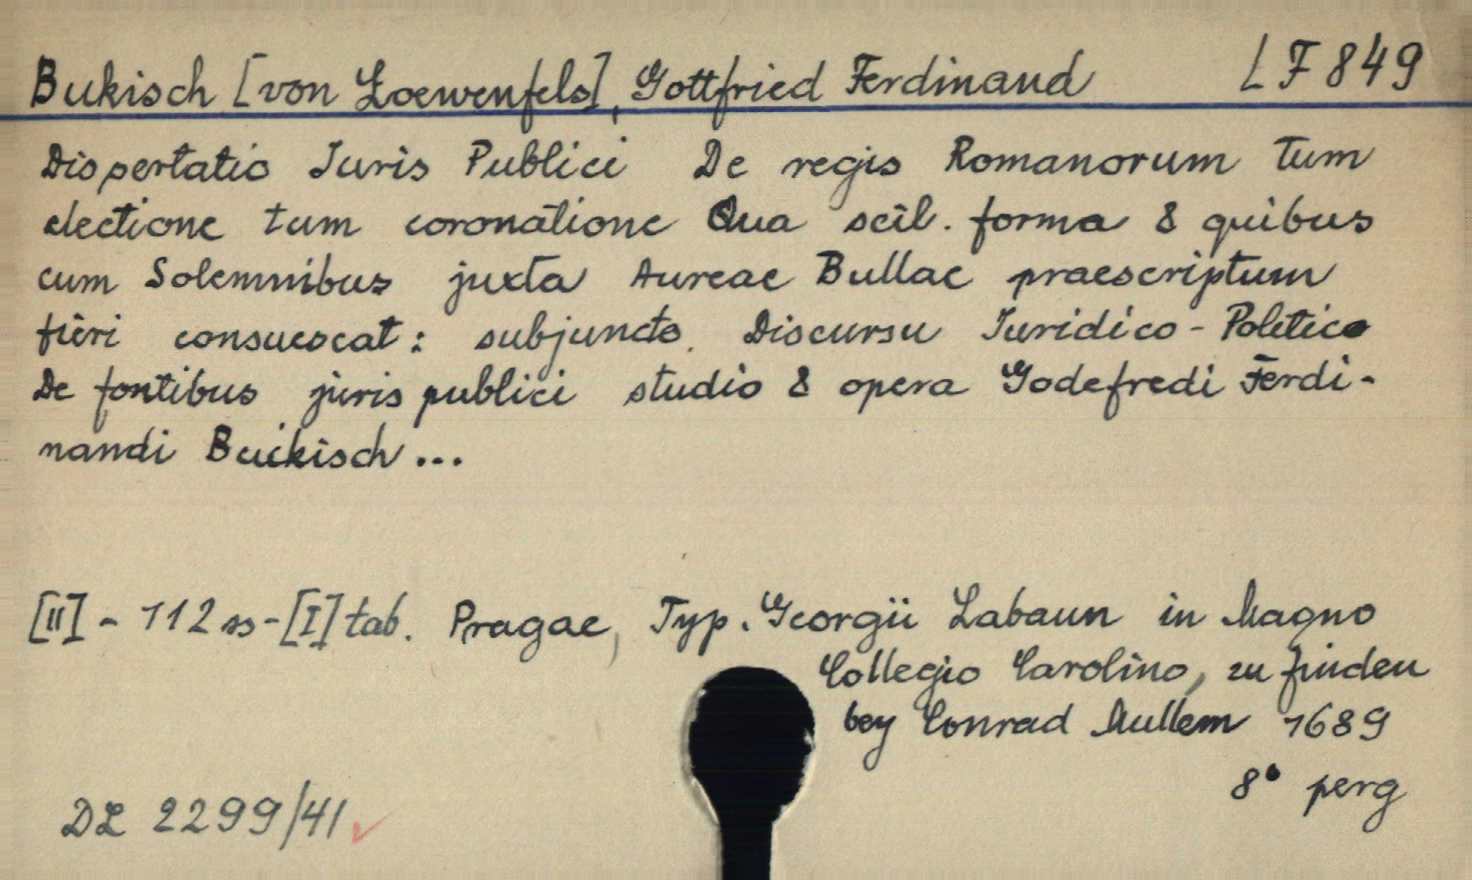 Bukisch [von Loewenfels], Gottfried Ferdinand LF 849
Dissertatio Iuris Publici De regis Romanorum Tum
electione tum coronatione Qua scil. forma & quibus
cum Solemnibus juxta Aureae Bullae praescriptum
fieri consuescat: subjuncto Discursu Iuridico-Politico
De fontibus juris publici studio & opera Godefredi Ferdi-
nandi Buckisch...
[II] - 112 ss - [I] tab. Pragae, Typ. Georgii Labaun in Magno
Collegio Carolino, zu finden
bey Conrad Mullem 1689
8° perg
DL 2299/41